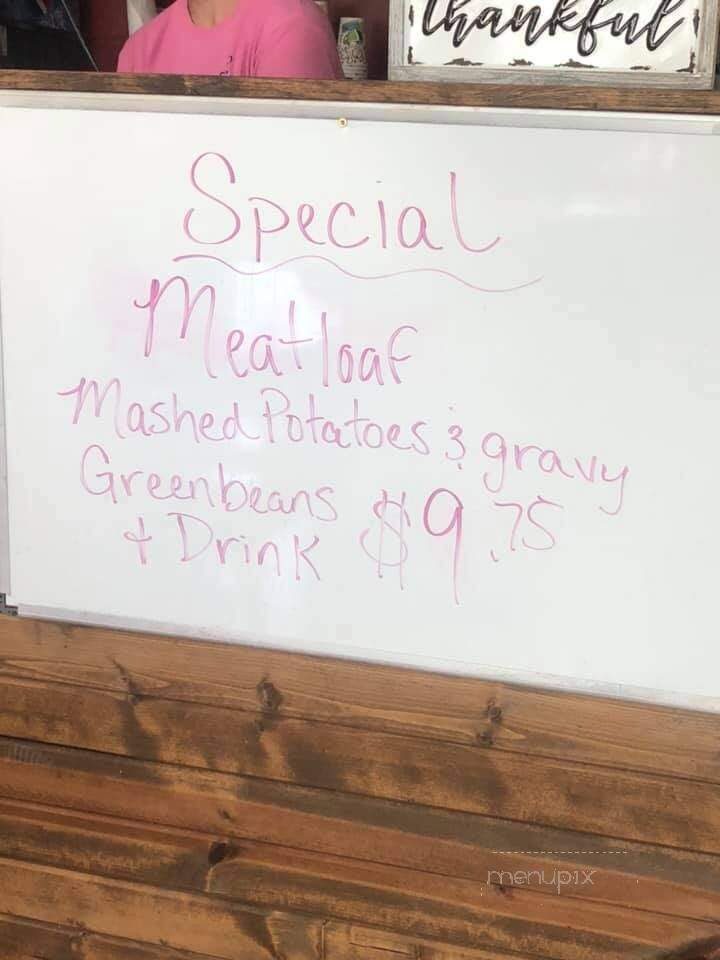 thankful
Special
Meatloaf
Mashed Potatoes & gravy
Greenbeans
+ Drink $9.75
menupix